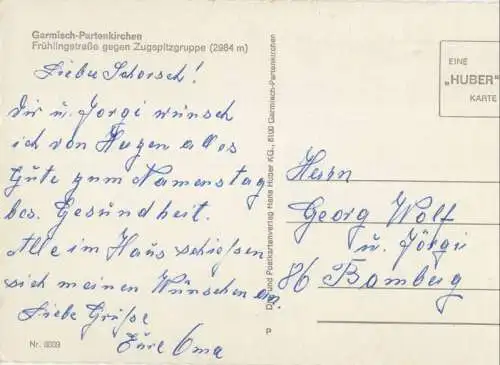 Garmisch-Partenkirchen
Frühlingstraße gegen Zugspitzgruppe (2964 m)
Lieber Schorsch!
Dir u. Jorgi wünsch
ich von Herzen alles
Gute zum Namenstag
bes. Gesundheit.
Alle im Haus schießen
sich meinen Wünschen an.
Liebe Grüße
Eure Oma
Nr. 8039
Druck und Postkartenverlag Hans Huber KG., 8100 Garmisch-Partenkirchen
P
EINE
„HUBER"
KARTE
Herrn
Georg Wolf
u. Jörgi
86 Bamberg